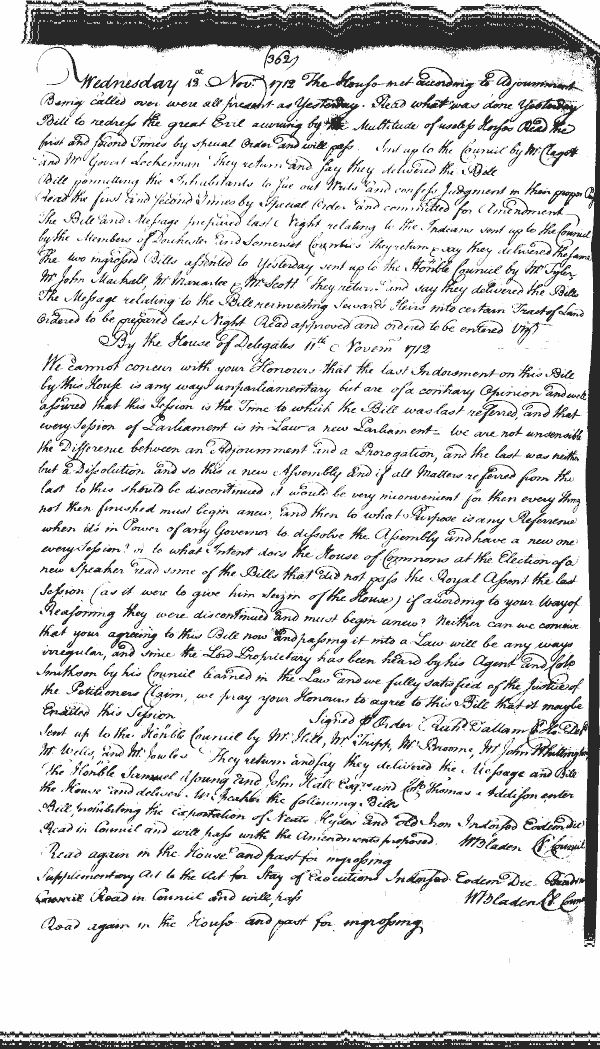 (362)
Wednesday 12th Novr. 1712 The House met according to Adjournment
Being called over were all present as Yesterday. Read what was done Yesterday
Bill to redress the great Evil accruing by the Multitude of useless Horses Read the
first and second Times by special Order and will pass. Sent up to the Council by Mr Clagett
and Mr Govert Lockerman They return and say they delivered the Bill
Bill permitting the Inhabitants to sue out Writs and confess Judgment in their proper
Read the first and second Times by Special Order and committed for Amendment
The Bill and Message prepared last Night relating to the Indians sent up to the Council
by the Members of Dorchester and Somerset Counties they return & say they delivered the same
The two ingrossed Bills assented to Yesterday sent up to the Honble Council by Mr Tyler
Mr John Mackall, Mr & Mr Scott they return and say they delivered the Bills
The Message relating to the Bill reinvesting Sewards Heirs into certain Tract of Land
Ordered to be prepared last Night Read approved and ordered to be entered Vizt
By the House of Delegates 11th Novem 1712
We cannot concur with your Honours that the last Indorsment on this Bill
by this House is any ways unparliamentary but are of a contrary Opinion and well
assured that this Session is the Time to which the Bill was last referred, and that
every Session of Parliament is in Law a new Parliament We are not unsensible
the Difference between an Adjournment and a Prorogation, and the last was neither
but a Dissolution and so this a new Assembly And if all Matters referred from the
last to this should be discontinued it would be very inconvenient for then every thing
not then finished must begin anew, and then to what Purpose is any Reference
when its in Power of any Governor to dissolve the Assembly and have a new one
every Session? or to what Intent does the House of Commons at the Election of a
new Speaker read some of the Bills that did not pass the Royal Assent the last
Session (as it were to give him Seizin of the House) if according to your Way of
Reasoning they were discontinued and must begin anew? Neither can we conceive
that your agreeing to this Bill now and passing it into a Law will be any ways
irregular, and since the Lord Proprietary has been heard by his Agent and Colo
Smithson by his Council learned in the Law and we fully satisfied of the Justice of
the Petitioners Claim, we pray your Honours to agree to this Bill that it may be
Enacted this Session Signed p Order Richd Dallam Cl Ho Del
Sent up to the Honble Council by Mr Hill, Mr Tripp, Mr Broome, Mr John Whittington
Mr Wells, and Mr Jowles They return and say they delivered the Message and Bill
The Honble Samuel Young and John Hall Esqrs and Colo Thomas Addison enter
the House and deliver Mr Speaker the following Bills
Bill prohibiting the Exportation of Neats Hydes and old Iron Indorsed Eodem die
Read in Council and will pass with the Amendments proposed. W Bladen Cl Council
Read again in the House and past for ingrossing
Supplementary Act to the Act for Stay of Executions Indorsed Eodem Die
Council Read in Council and will pass W Bladen Cl Coun
Read again in the House and past for ingrossing